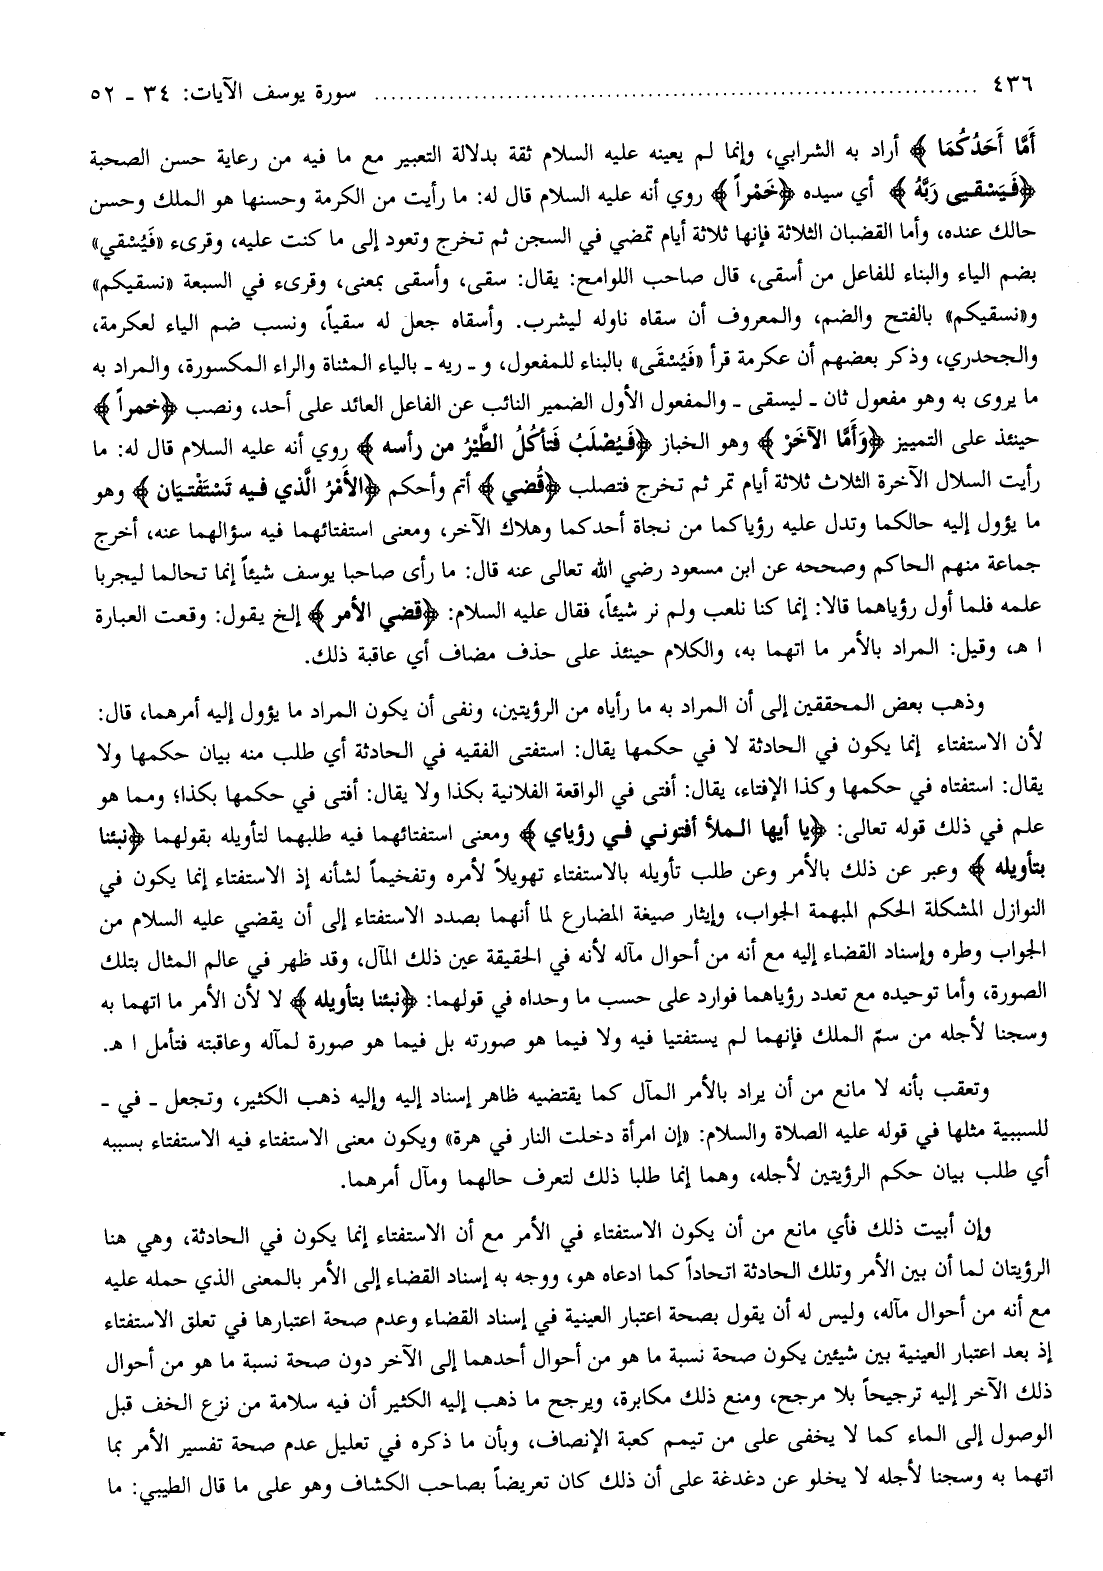 ٤٣٦ ........................................................................ سورة يوسف الآيات: ٣٤ ـ ٥٢
أَمَّا أَحَدُكُمَا ﴾ أراد به الشرابي، وإنما لم يعينه عليه السلام ثقة بدلالة التعبير مع ما فيه من رعاية حسن الصحبة
﴿فَيَسْقِي رَبَّهُ ﴾ أي سيده ﴿خَمْراً ﴾ روي أنه عليه السلام قال له: ما رأيت من الكرمة وحسنها هو الملك وحسن
حالك عنده، وأما القضبان الثلاثة فإنها ثلاثة أيام تمضي في السجن ثم تخرج وتعود إلى ما كنت عليه، وقرىء «فَيُسْقي»
بضم الياء والبناء للفاعل من أسقى، قال صاحب اللوامح: يقال: سقى، وأسقى بمعنى، وقرىء في السبعة «نسقيكم»
و«نسقيكم» بالفتح والضم، والمعروف أن سقاه ناوله ليشرب. وأسقاه جعل له سقياً، ونسب ضم الياء لعكرمة،
والجحدري، وذكر بعضهم أن عكرمة قرأ «فَيُسْقَى» بالبناء للمفعول، و ـ ريه ـ بالياء المثناة والراء المكسورة، والمراد به
ما يروى به وهو مفعول ثان ـ ليسقى ـ والمفعول الأول الضمير النائب عن الفاعل العائد على أحد، ونصب ﴿خمراً ﴾
حينئذ على التمييز ﴿وَأَمَّا الآخَرْ ﴾ وهو الخباز ﴿فَيُصْلَبُ فَتأكُلُ الطَّيْرُ من رأسه ﴾ روي أنه عليه السلام قال له: ما
رأيت السلال الآخرة الثلاث ثلاثة أيام تمر ثم تخرج فتصلب ﴿قُضي ﴾ أتم وأحكم ﴿الأَمْرُ الَّذي فيه تَسْتَفْتيَان ﴾ وهو
ما يؤول إليه حالكما وتدل عليه رؤياكما من نجاة أحدكما وهلاك الآخر، ومعنى استفتائهما فيه سؤالهما عنه، أخرج
جماعة منهم الحاكم وصححه عن ابن مسعود رضي الله تعالى عنه قال: ما رأى صاحبا يوسف شيئاً إنما تحالما ليجربا
علمه فلما أول رؤياهما قالا: إنما كنا نلعب ولم نر شيئاً، فقال عليه السلام: ﴿قضي الأمر ﴾ إلخ يقول: وقعت العبارة
ا هـ، وقيل: المراد بالأمر ما اتهما به، والكلام حينئذ على حذف مضاف أي عاقبة ذلك.
وذهب بعض المحققين إلى أن المراد به ما رأياه من الرؤيتين، ونفى أن يكون المراد ما يؤول إليه أمرهما، قال:
لأن الاستفتاء إنما يكون في الحادثة لا في حكمها يقال: استفتى الفقيه في الحادثة أي طلب منه بيان حكمها ولا
يقال: استفتاه في حكمها وكذا الإفتاء، يقال: أفتى في الواقعة الفلانية بكذا ولا يقال: أفتى في حكمها بكذا؛ ومما هو
علم في ذلك قوله تعالى: ﴿يا أيها الملأ أفتوني في رؤياي ﴾ ومعنى استفتائهما فيه طلبهما لتأويله بقولهما ﴿نبئنا
بتأويله ﴾ وعبر عن ذلك بالأمر وعن طلب تأويله بالاستفتاء تهويلاً لأمره وتفخيماً لشأنه إذ الاستفتاء إنما يكون في
النوازل المشكلة الحكم المبهمة الجواب، وإيثار صيغة المضارع لما أنهما بصدد الاستفتاء إلى أن يقضي عليه السلام من
الجواب وطره وإسناد القضاء إليه مع أنه من أحوال مآله لأنه في الحقيقة عين ذلك المآل، وقد ظهر في عالم المثال بتلك
الصورة، وأما توحيده مع تعدد رؤياهما فوارد على حسب ما وحداه في قولهما: ﴿نبئنا بتأويله ﴾ لا لأن الأمر ما اتهما به
وسجنا لأجله من سمّ الملك فإنهما لم يستفتيا فيه ولا فيما هو صورته بل فيما هو صورة لمآله وعاقبته فتأمل ا هـ.
وتعقب بأنه لا مانع من أن يراد بالأمر المآل كما يقتضيه ظاهر إسناد إليه وإليه ذهب الكثير، وتجعل ـ في ـ
للسببية مثلها في قوله عليه الصلاة والسلام: «إن امرأة دخلت النار في هرة» ويكون معنى الاستفتاء فيه الاستفتاء بسببه
أي طلب بيان حكم الرؤيتين لأجله، وهما إنما طلبا ذلك لتعرف حالهما ومآل أمرهما.
وإن أبيت ذلك فأي مانع من أن يكون الاستفتاء في الأمر مع أن الاستفتاء إنما يكون في الحادثة، وهي هنا
الرؤيتان لما أن بين الأمر وتلك الحادثة اتحاداً كما ادعاه هو، ووجه به إسناد القضاء إلى الأمر بالمعنى الذي حمله عليه
مع أنه من أحوال مآله، وليس له أن يقول بصحة اعتبار العينية في إسناد القضاء وعدم صحة اعتبارها في تعلق الاستفتاء
إذ بعد اعتبار العينية بين شيئين يكون صحة نسبة ما هو من أحوال أحدهما إلى الآخر دون صحة نسبة ما هو من أحوال
ذلك الآخر إليه ترجيحاً بلا مرجح، ومنع ذلك مكابرة، ويرجح ما ذهب إليه الكثير أن فيه سلامة من نزع الخف قبل
الوصول إلى الماء كما لا يخفى على من تيمم كعبة الإنصاف، وبأن ما ذكره في تعليل عدم صحة تفسير الأمر بما
اتهما به وسجنا لأجله لا يخلو عن دغدغة على أن ذلك كان تعريضاً بصاحب الكشاف وهو على ما قال الطيبي: ما